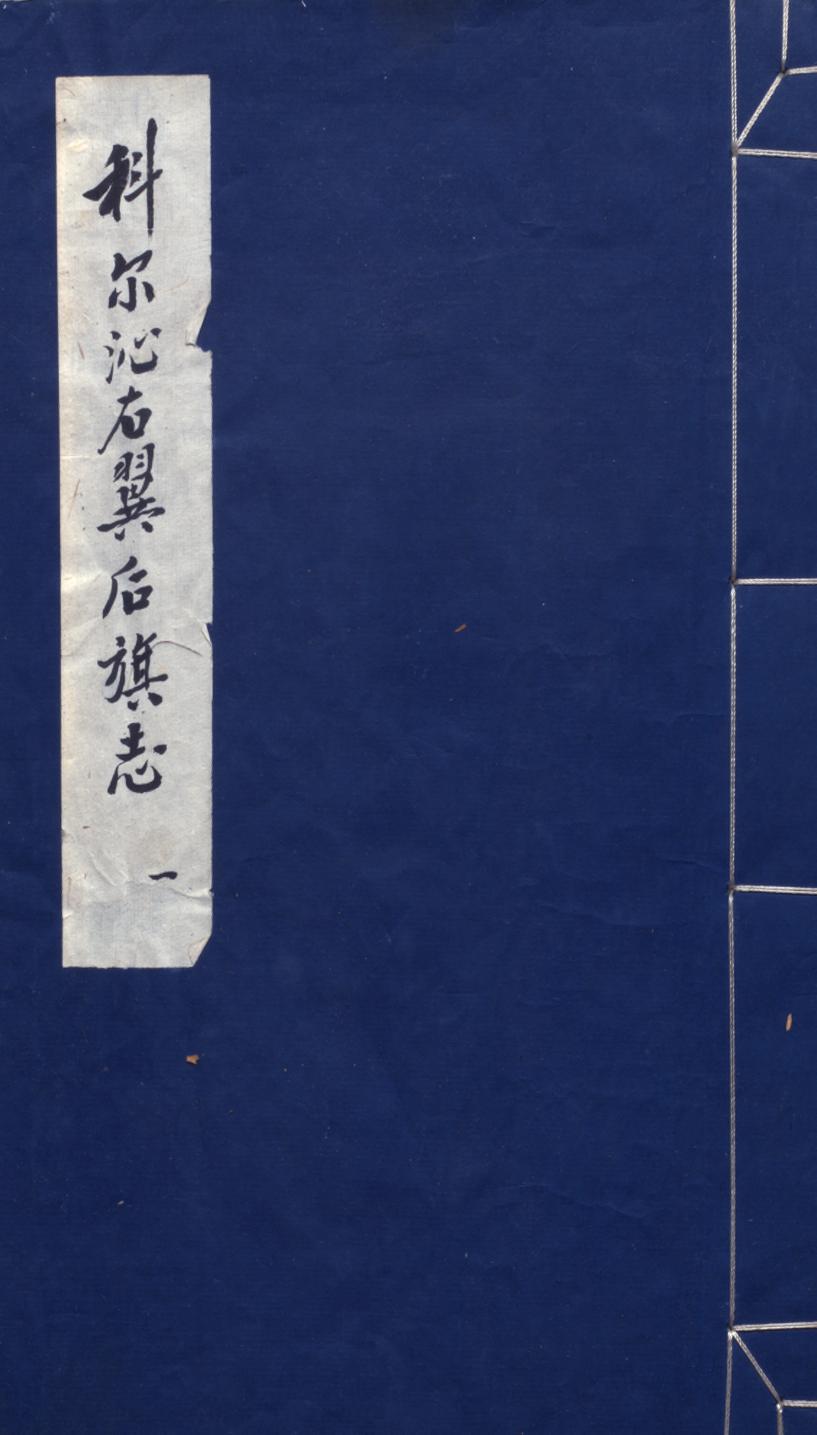 科尔沁右翼后旗志
一